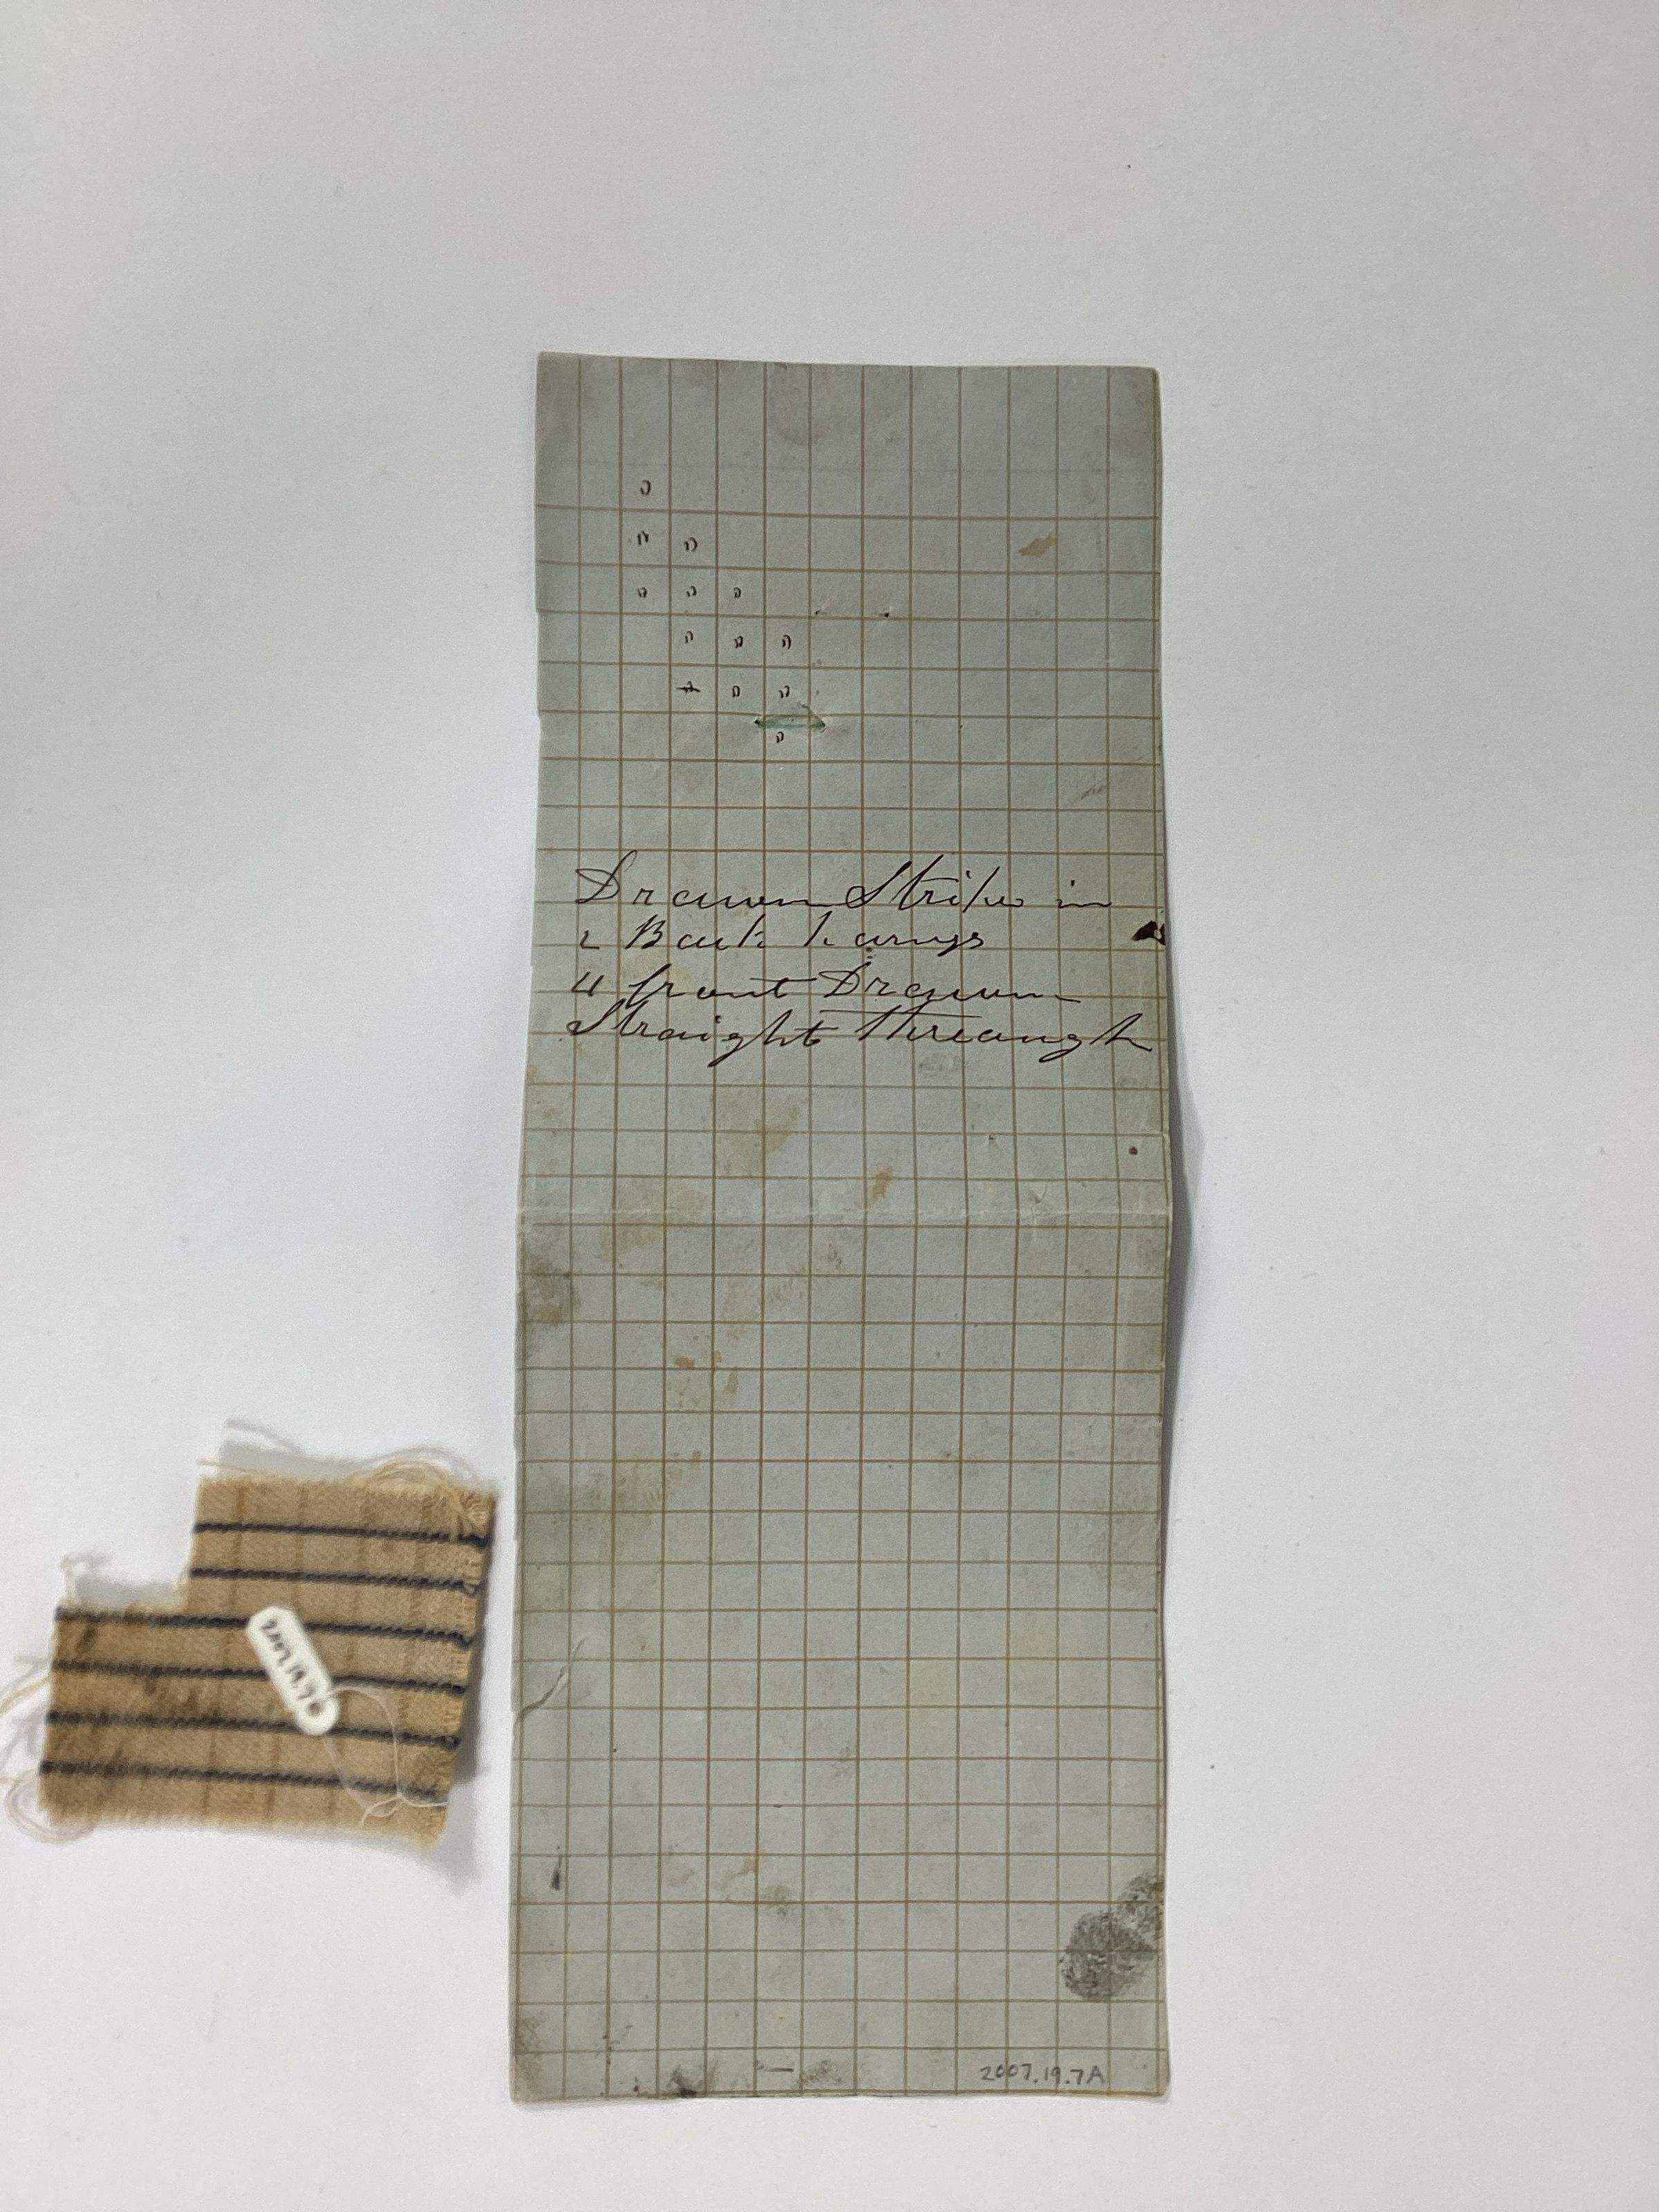 Drawn Stripe in
2 Back harngs
4 front Drawn
Straight Threaugh
2007.19.7A